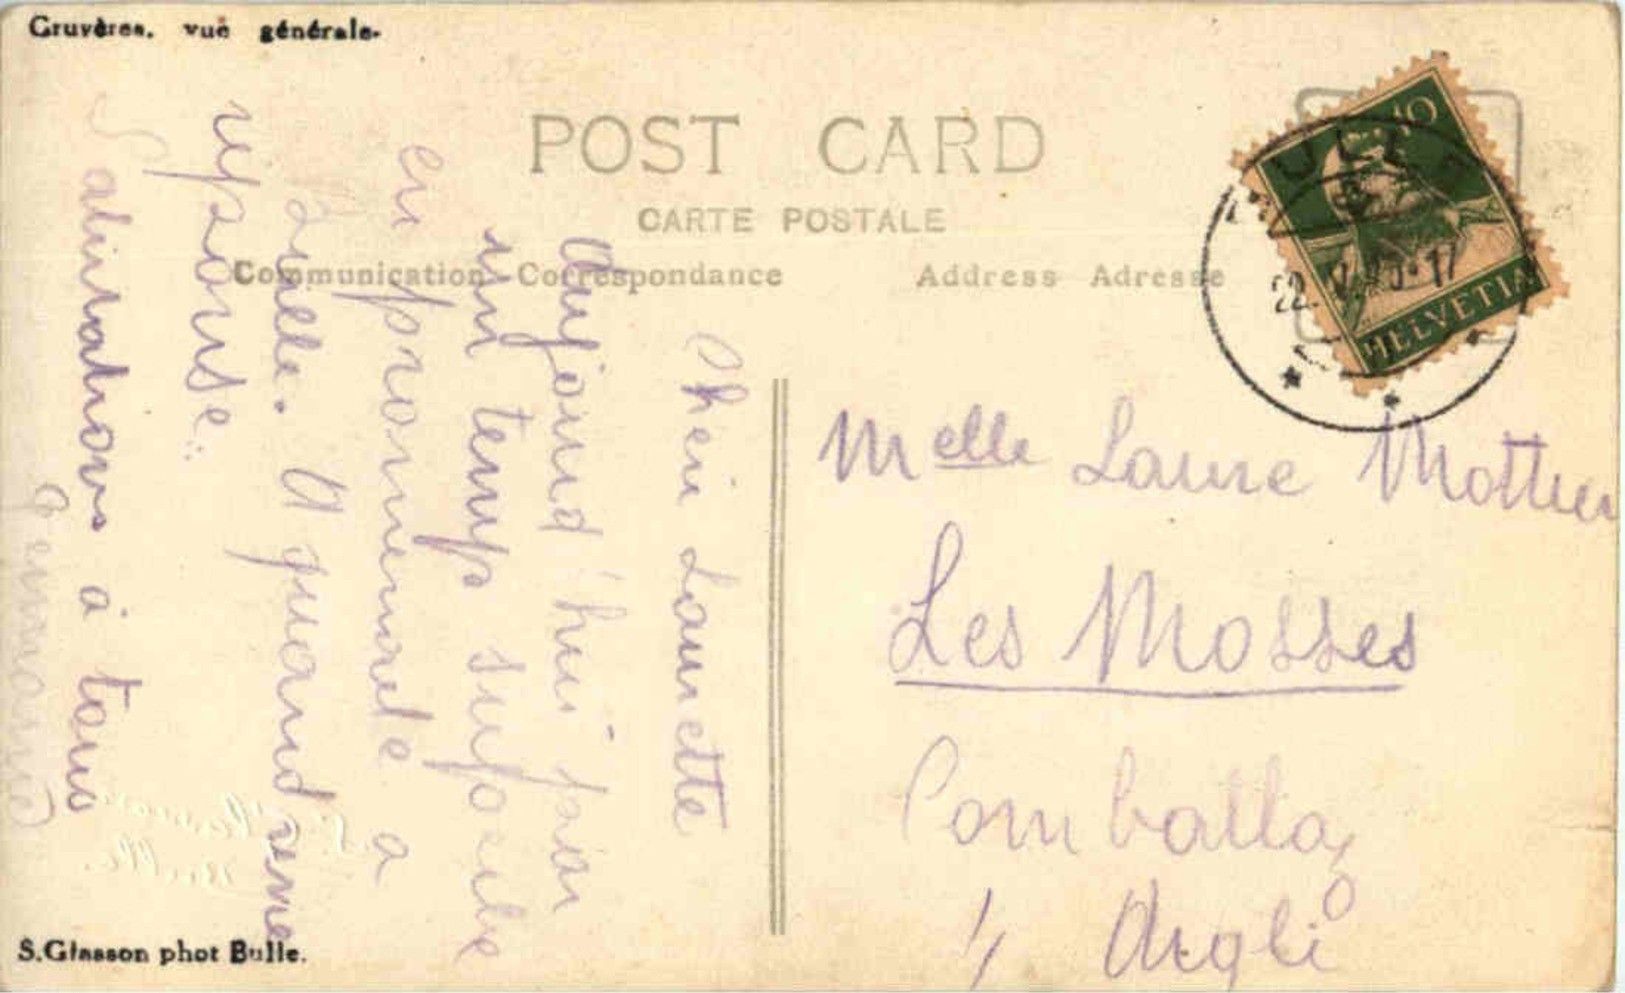 Gruyères. vue générale.
POST CARD
CARTE POSTALE
Communication Correspondance
Address Adresse
10
HELVETIA
BULLE
Cheri Laurette
Aujourd'hui par
un temps superbe
en promenade a
Bulle. A quand une
réponse.
Salutations à tous
Germaine
Melle Laure Mottier
Les Mosses
Comballaz
s/ Aigle
S. Glasson phot Bulle.